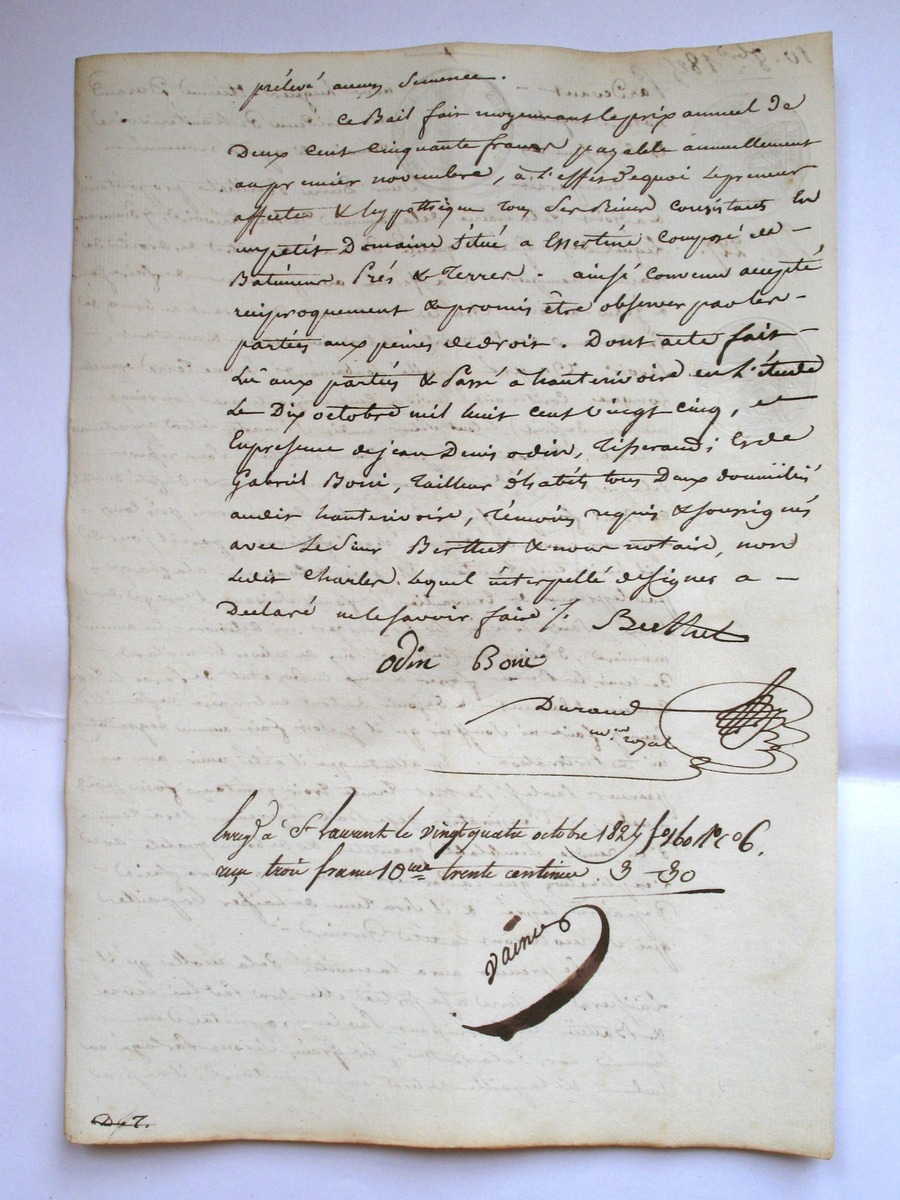 prélevé aucune Semence.
ce Bail fait moyennant le prix annuel de
Deux cent cinquante francs payable annuellement
au premier novembre, à l'effet de quoi le preneur
affecte & hypothèque tous ses Biens consistants En
un petit Domaine situé a Essertine composé de –
Batiments Prés & Terres. ainsi convenu accepté
réciproquement & promis être observer par les –
parties aux peines de droit. Dont acte fait –
Lû aux parties & Passé à hauterivoire en L'étude
Le Dix octobre mil huit cent vingt cinq, et
En presence de jean Denis odin, Tisserand; & de
Gabriel Boni, Tailleur d'habits tous Deux domiciliés
audit hauterivoire, témoins requis & soussignés
avec Le Sieur Berthet & nous notaire, non
Ledit Charles Lequel interpellé de signer a –
Declaré ne le savoir faire /. Berthet
odin Boni
Durand
n.re royal
Enreg.é à S.t Laurent le vingt quatre octobre 1825 f.o 160 R.o c.e 6.
reçu trois francs 10.me trente centimes. 3 - 30